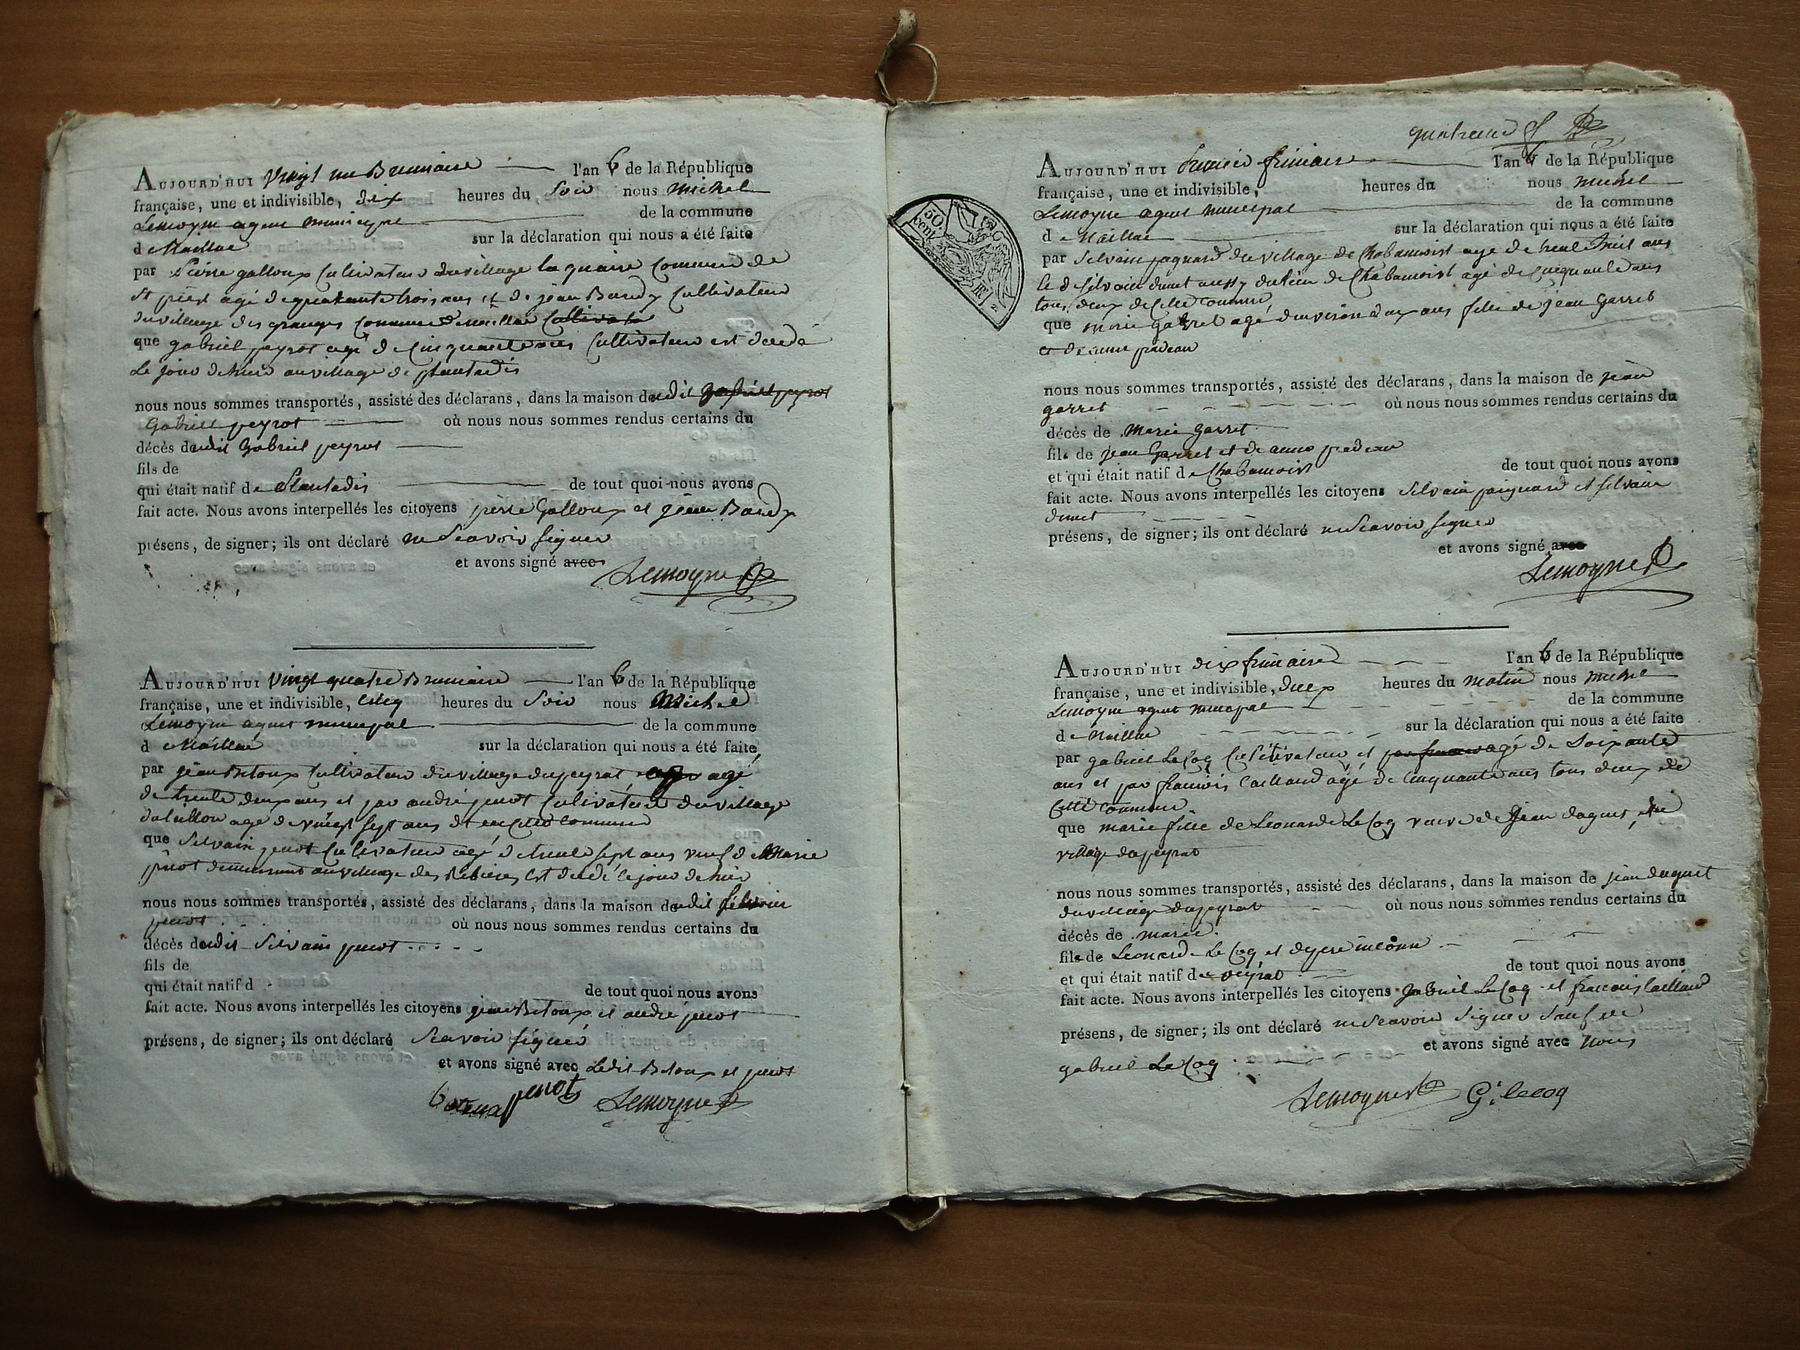 Aujourd'hui vingt un Brumaire l'an 6 de la République
française, une et indivisible, dix heures du soir nous Michel
Lemoyne agent municipal de la commune
de Maillac sur la déclaration qui nous a été faite
par Pierre galloux Cultivateur du village la quaire Commune de
St agé de quarante trois ans et de jean Bardy Cultivateur
du village des granges Commune de maillac
que gabriel peyrot agé de Cinquante ans Cultivateur est décédé
Le jour d'hier au village de plantadis
nous nous sommes transportés, assisté des déclarans, dans la maison dudit gabriel peyrot
Gabriel peyrot où nous nous sommes rendus certains du
décès dudit Gabriel peyrot
fils de
qui était natif de Plantadis de tout quoi nous avons
fait acte. Nous avons interpellés les citoyens pierre Galloux et jean Bardy
présens, de signer; ils ont déclaré ne Scavoir signer
et avons signé avec
Lemoyne
Aujourd'hui vingt quatre Brumaire l'an 6 de la République
française, une et indivisible, cinq heures du Soir nous Michel
Lemoyne agent municipal de la commune
de Maillac sur la déclaration qui nous a été faite
par jean Betoux Cultivateur du village du peyrat agé
de trente deux ans et par andré penot Cultivateur du village
agé de vingt sept ans de commune
que Silvain penot Cultivateur agé de trente sept ans veuf de Marie
pinot demeurant au village des Ribieres est décédé le jour d'hier
nous nous sommes transportés, assisté des déclarans, dans la maison dudit silvain
penot où nous nous sommes rendus certains du
décès dudit Silvain penot
fils de
qui était natif d de tout quoi nous avons
fait acte. Nous avons interpellés les citoyens jean Betoux et andré penot
présens, de signer; ils ont déclaré Scavoir signer
et avons signé avec Ledit Betoux et penot
penot Lemoyne
Aujourd'hui premier frimaire l'an 6 de la République
française, une et indivisible, heures du nous michel
Lemoyne agent municipal de la commune
de Maillac sur la déclaration qui nous a été faite
par Silvain pagnard du village de Chabannoist agé de trent huit ans
et de silvain dunet aussy de Chabannoist agé de Cinquante ans
tous deux de Cette Commune
que marie garret agé d'environ ans fille de jean Garret
et de anne padeau
nous nous sommes transportés, assisté des déclarans, dans la maison de jean
garret où nous nous sommes rendus certains du
décès de Marie Garret
fils de jean Garret et de anne padeau
et qui était natif de Chabannoist de tout quoi nous avons
fait acte. Nous avons interpellés les citoyens Silvain paignard et silvain
dunet
présens, de signer; ils ont déclaré ne Scavoir signer
et avons signé avec
Lemoyne
Aujourd'hui dix frimaire l'an 6 de la République
française, une et indivisible, dix heures du matin nous michel
Lemoyne agent municipal de la commune
de Maillac sur la déclaration qui nous a été faite
par gabriel Le Coq Cultivateur et agé de soixante
ans et par francois Caillaud agé de Cinquante ans tous deux de
Cette Commune
que marie fille de Leonarde Le Coq veuve de jean daguet du
village du peyrat
nous nous sommes transportés, assisté des déclarans, dans la maison de jean daguet
du village du peyrat où nous nous sommes rendus certains du
décès de marie
fils de Leonarde Le Coq et de pere inconnu
et qui était natif de peyrat de tout quoi nous avons
fait acte. Nous avons interpellés les citoyens gabriel Le Coq et francois Caillaud
présens, de signer; ils ont déclaré ne Scavoir Signer sauf
gabriel Le Coq et avons signé avec nous
Lemoyne G: lecoq